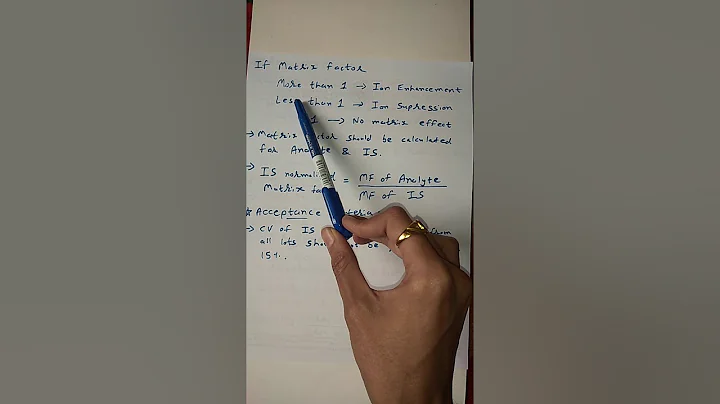 If Matrix factor
More than 1 → Ion Enhancement
Less than 1 → Ion Supression
1 → No matrix effect
→ Matrix factor should be calculated
for Analyte & IS.
→ IS normalized
Matrix = MF of Analyte / MF of IS
Acceptance
→ CV of IS from
all lots be
15%.